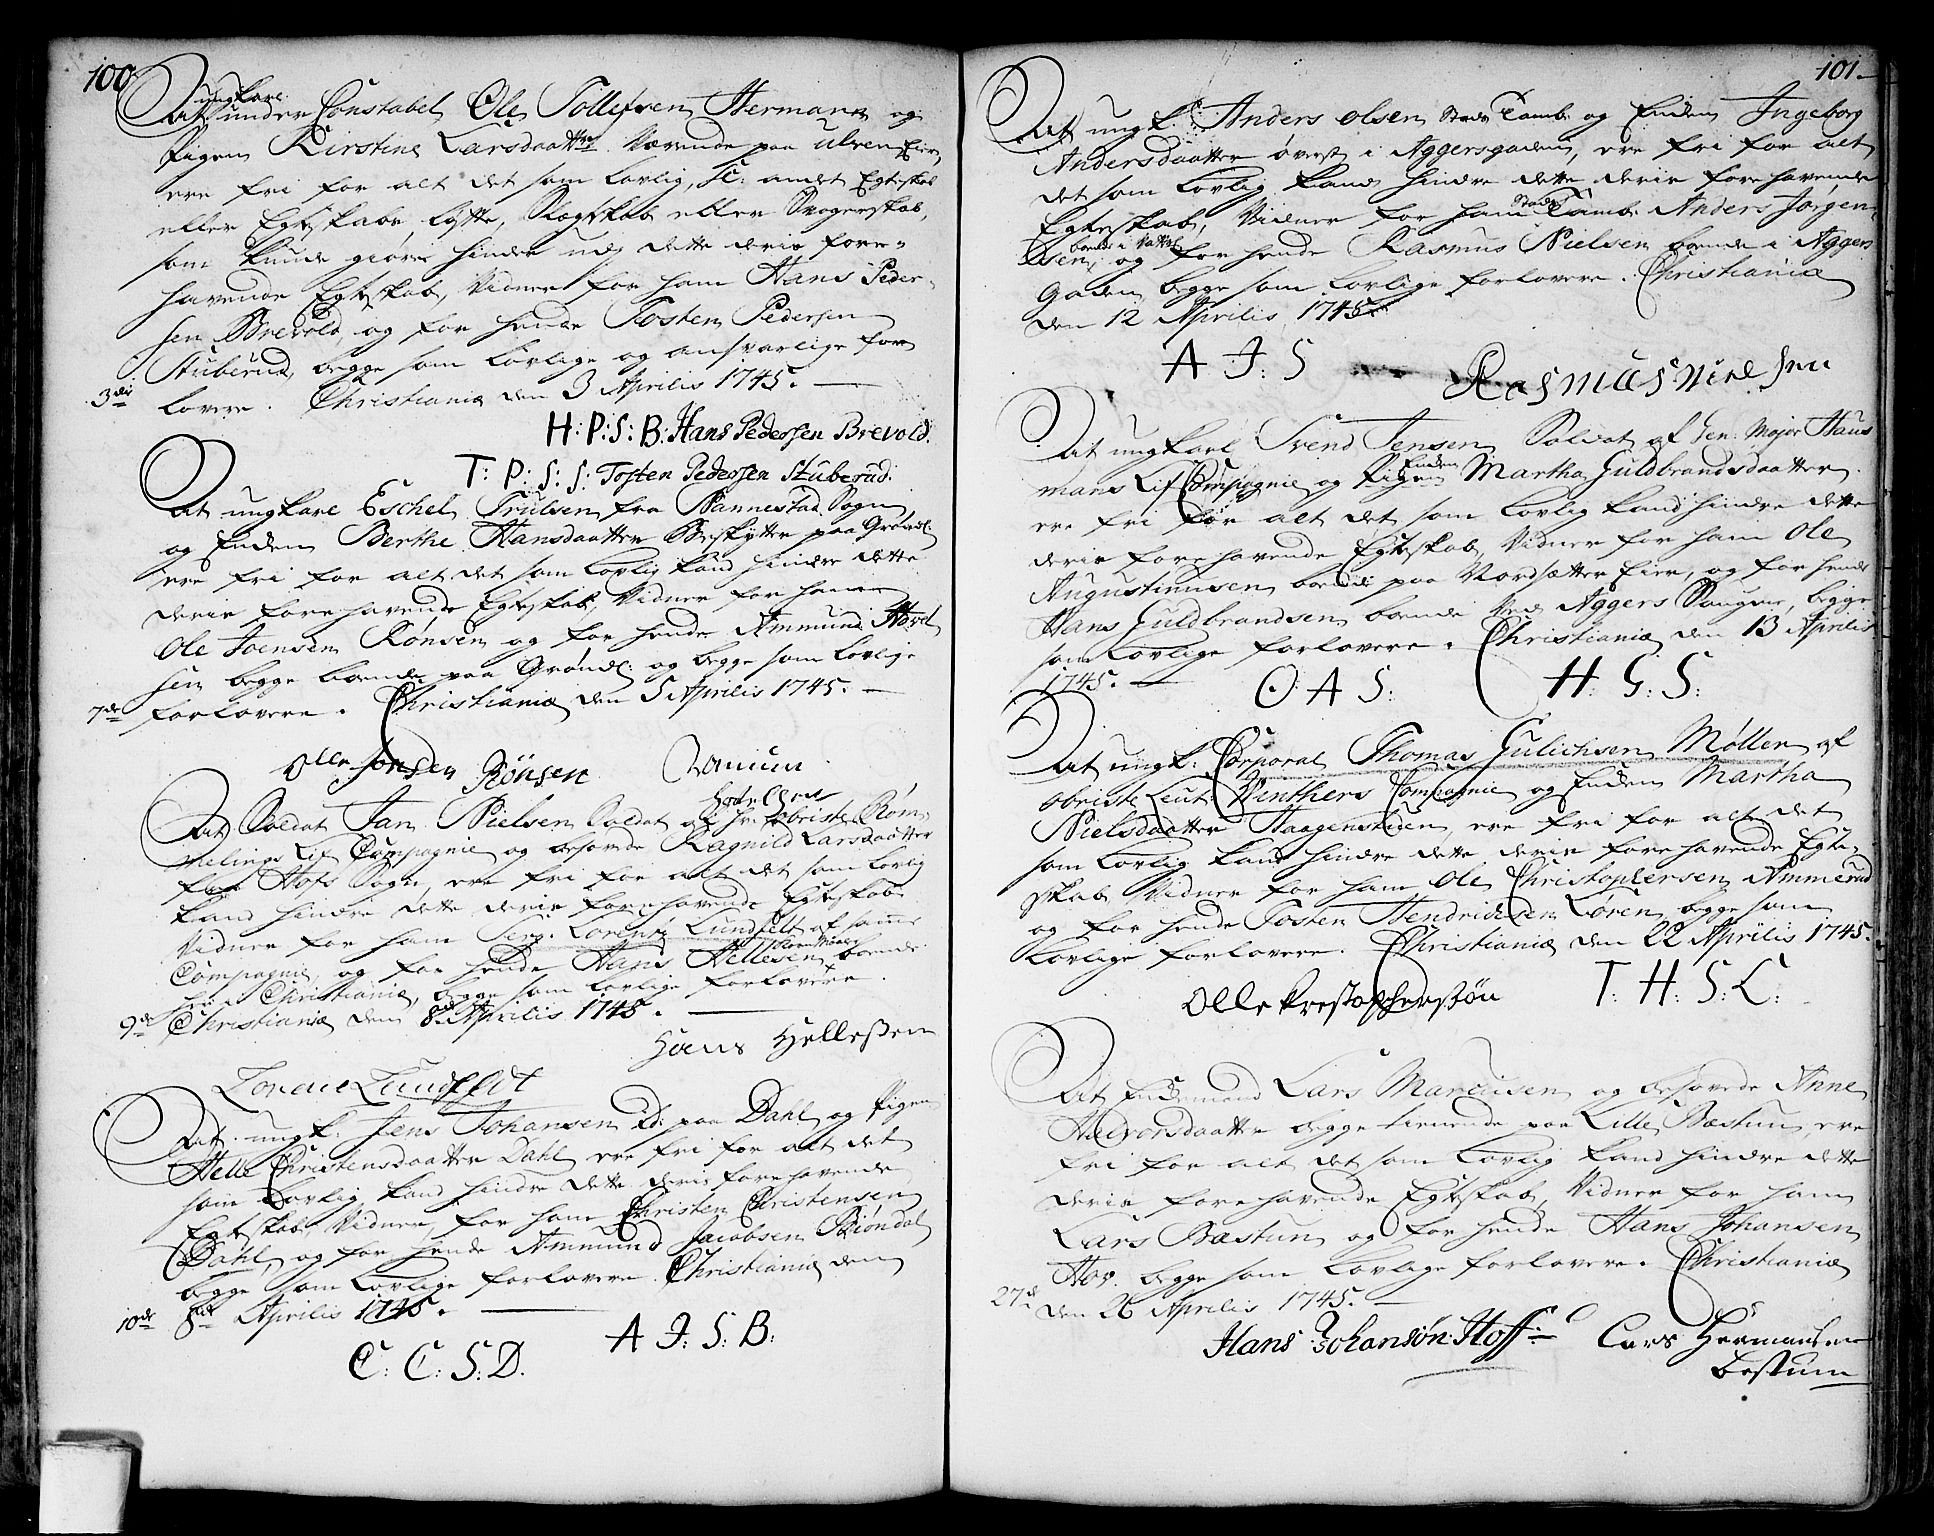 100
ungkarl
At under Constabel Ole Tollefsen Hermann og
Pigen Kirstine Larsdaatter Værende paa Ulven Eier,
ere fri for alt det som lovlig, sc: andet Egteskab
eller Egteskabs løfte, Slægtskab eller Svogerskab,
som kunde giøre hinder udj dette deris fore-
havende Egteskab, Vidner for ham Hans Peder-
sen Brevold, og for hende Tosten Pedersen
Stuberud, begge som lovlige og ansvarlige for-
lovere. Christiania den 3 Aprilis 1745.
H: P: S: B: Hans Pedersen Brevold.
T: P: S: S: Tosten Pedersen Stuberud.
At ungkarl Eschel Trulsen fra Nannestad Sogn
og Enden Berthe Hansdaatter Beskytter paa Grøndl:
ere fri for alt det som lovlig kand hindre dette
deris forehavende Egteskab, Vidner for ham
Ole Joensen Rønsen og for hende Ammund
sen begge boende paa Grøndl: og begge som lovlige
7de forlovere. Christiania den 5 Aprilis 1745.
Olle Jonsen Rønsen
At Soldat Jan Nielsen Soldat af Hr: Obriste Røm-
melings Lif Compagnie og besovede Ragnild Larsdaatter
fra Hofs Sogn, ere fri for alt det som lovlig
kand hindre dette deris forehavende Egteskab
Vidner for ham Serg: Lorentz Lundfelt af samme
Compagnie, og for hende Hans Hellesen boende
her i Christiania, begge som lovlige forlovere
9de Christiania den 8de Aprilis 1745.
Hans Hellesen
At ungk: Jens Johansen ibd: paa Dahl og Pigen
Helle Christensdaatter Dahl ere fri for alt det
som lovlig kand hindre dette deris forehavende
Egteskab, Vidner, for ham Christen Christensen
Dahl, og for hende Ammund Jacobsen Biøndal
begge som lovlige forlovere. Christiania den
10de 8de Aprilis 1745.
C: C: S: D. A J: S: B:
101
At ungk. Anders Olsen Stads Tamb: og Enden Ingeborg
Andersdaatter øverst i Aggersgaden, ere fri for alt
det som lovlig kand hindre dette deris forehavende
Egteskab, Vidner for ham Stads Tamb: Anders Jørgen-
sen, og for hende Rasmus Nielsen boende i Aggers
Gaden, begge som lovlige forlovere. Christiania
den 12 Aprilis 1745.
A J: S Rasmus Nielsen
At ungkarl Svend Jensen Soldat af Gen: Major Haus-
mans Lif Compagnie og Enden Martha Guldbrandsdaatter
ere fri for alt det som lovlig kand hindre dette
deris forehavende Egteskab, Vidner for ham Ole
Augustinusen boende paa Nordsætter Eier, og for hende
Hans Guldbrandsen boende ved Aggers Saugene, begge
som lovlige forlovere. Christiania den 13 Aprilis
1745. O: A S: H: G: S:
At ungk: Corporal Thomas Gulichsen Møller af
Obriste Leut: Winthers Compagnie og Enden Martha
Nielsdaatter Haagenstuen, ere fri for alt det
som lovlig kand hindre dette deris forehavende Egte-
skab Vidner for ham Ole Christophersen Ammerud
og for hende Tosten Hendrichsen Løren begge som
lovlige forlovere. Christiania den 22 Aprilis 1745.
Olle Krestopherssøn T: H: S: L:
At Enckemand Lars Marcusen og besovede Anne
Halvorsdaatter begge tienende paa Lille Bæstum, ere
fri for alt det som lovlig kand hindre dette
deris forehavende Egteskab, Vidner for ham
Lars Bæstum og for hende Hans Johansen
Hov. begge som lovlige forlovere. Christiania
27de den 26 Aprilis 1745.
Hans Johansøn Hoff Lars Hermansen
Bestum